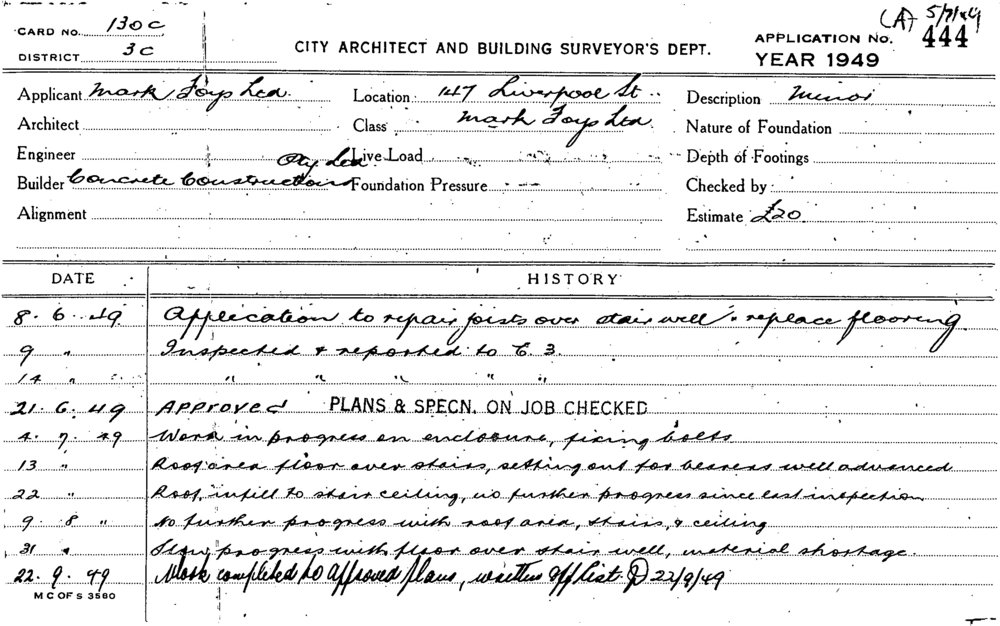 CARD NO. 130C
DISTRICT 3C
CITY ARCHITECT AND BUILDING SURVEYOR'S DEPT.
(A) 5/7/49
APPLICATION NO. 444
YEAR 1949
Applicant Mark Foys Ltd.
Location 147 Liverpool St.
Description Minor
Architect
Class Mark Foys Ltd.
Nature of Foundation
Engineer
Live Load
Depth of Footings
Builder Concrete Constructions Pty Ltd
Foundation Pressure
Checked by
Alignment
Estimate £20.
DATE HISTORY
8. 6. 49 Application to repair joists over stair well & replace flooring.
9 " Inspected & reported to C. 3.
14 " " " " " "
21. 6. 49 Approved PLANS & SPECN. ON JOB CHECKED
4. 7. 49 Work in progress on enclosure, fixing bolts
13 " Roof area floor over stairs, setting out for bearers well advanced
22 " Roof, infill to stair ceiling, no further progress since last inspection
9. 8 " No further progress with roof area, stairs, & ceiling
31 " Slow progress with floor over stair well, material shortage.
22. 9. 49 Work completed to approved plans, written off list 22/9/49
M C OF S 3560